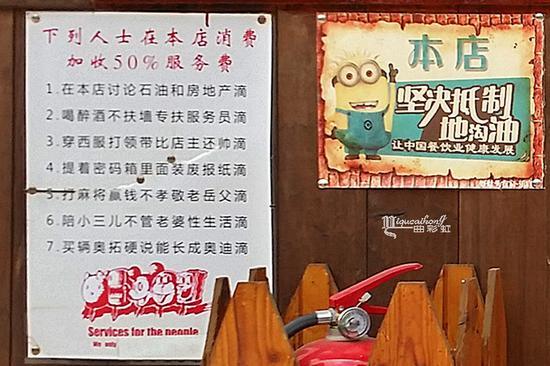 下列人士在本店消费
加收50%服务费
1. 在本店讨论石油和房地产滴
2. 喝醉酒不扶墙专扶服务员滴
3. 穿西服打领带比店主还帅滴
4. 提着密码箱里面装废报纸滴
5. 打麻将赢钱不孝敬老岳父滴
6. 陪小三儿不管老婆性生活滴
7. 买辆奥拓硬说能长成奥迪滴
Services for the people
We only
本店
坚决抵制
地沟油
让中国餐饮业健康发展
Miqucaihong
曲彩虹